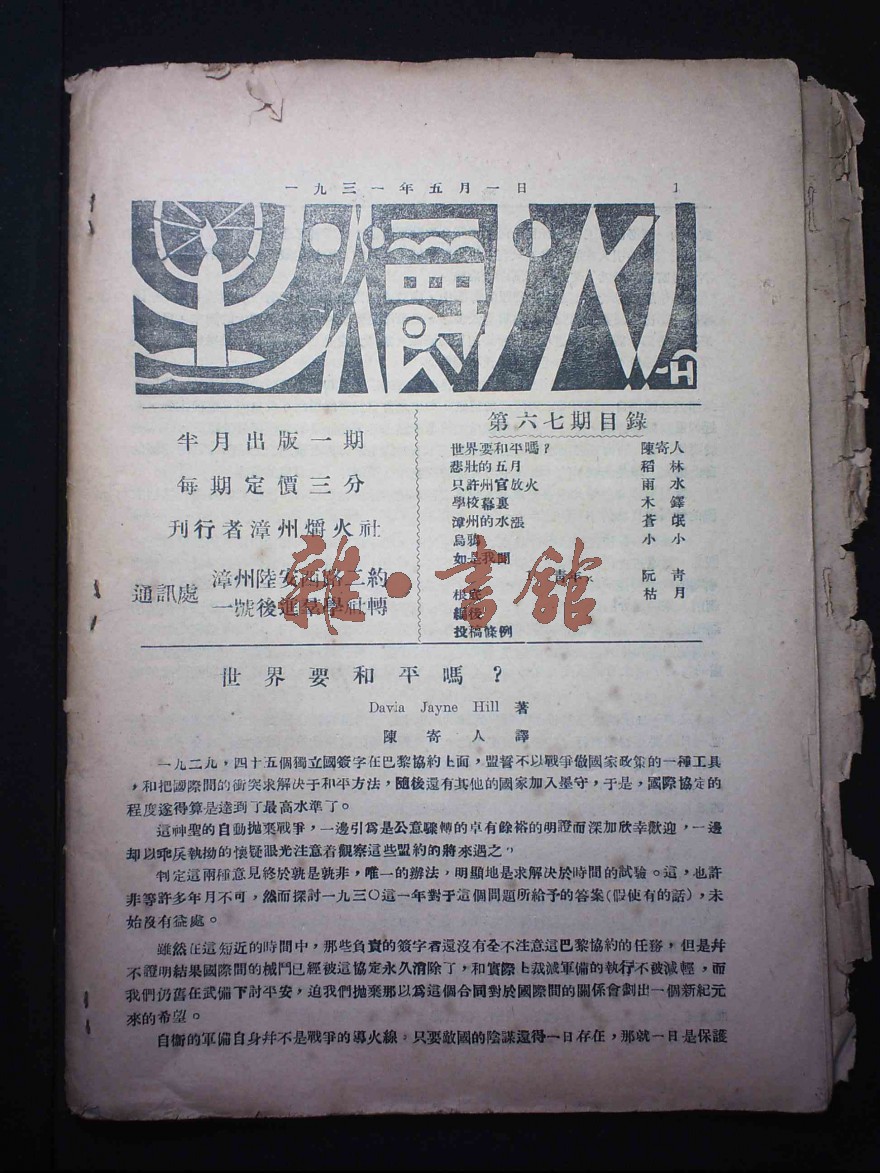 一九三一年五月一日 1
爝火
半月出版一期
每期定價三分
刊行者漳州爝火社
通訊處
漳州陸安西路二約
一號後進羣學社轉
第六七期目錄
世界要和平嗎？ 陳寄人
悲壯的五月 稻林
只許州官放火 雨水
學校幕裏 木鐸
漳州的水漲 蒼氓
烏鴉 小小
如是我聞
青年 阮青
根 枯月
編後
投稿條例
雜·書館
世界要和平嗎？
Davia Jayne Hill 著
陳寄人譯
一九二九，四十五個獨立國簽字在巴黎協約上面，盟誓不以戰爭做國家政集的一種工具
，和把國際間的衝突求解决于和平方法，隨後還有其他的國家加入墨守，于是，國際協定的
程度遂得算是達到了最高水準了。
這神聖的自動拋棄戰爭，一邊引爲是公意驟轉的卓有餘裕的明證而深加欣幸歡迎，一邊
却以乖戾執拗的懷疑眼光注意着觀察這些盟約的將來遇之。
判定這兩種意見終於孰是孰非，唯一的辦法，明顯地是求解决於時間的試驗。這，也許
非等許多年月不可，然而探討一九三〇這一年對于這個問題所給予的答案（假使有的話），未
始沒有益處。
雖然在這短近的時間中，那些負責的簽字者還沒有全不注意這巴黎協約的任務，但是幷
不證明結果國際間的械鬥已經被這協定永久消除了，和實際上裁減軍備的執行不被減輕，而
我們仍舊在武備下討平安，迫我們拋棄那以爲這個合同對於國際間的關係會劃出一個新紀元
來的希望。
自衞的軍備自身幷不是戰爭的導火線。只要敵國的陰謀還得一日存在，那就一日是保護